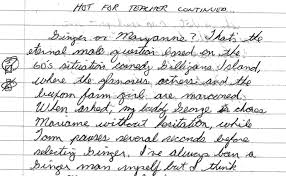 HOT FOR TEACHER CONTINUED
Ginger or Maryanne? That's the
eternal male question based on the
60's situation comedy Gilligans Island,
where the glamorous actress and the
buxom farm girl are marooned.
When asked, my buddy George chooses
Mariane without hesitation, while
Tom pauses several seconds before
selecting Ginger. I've always been a
Ginger man myself but I think